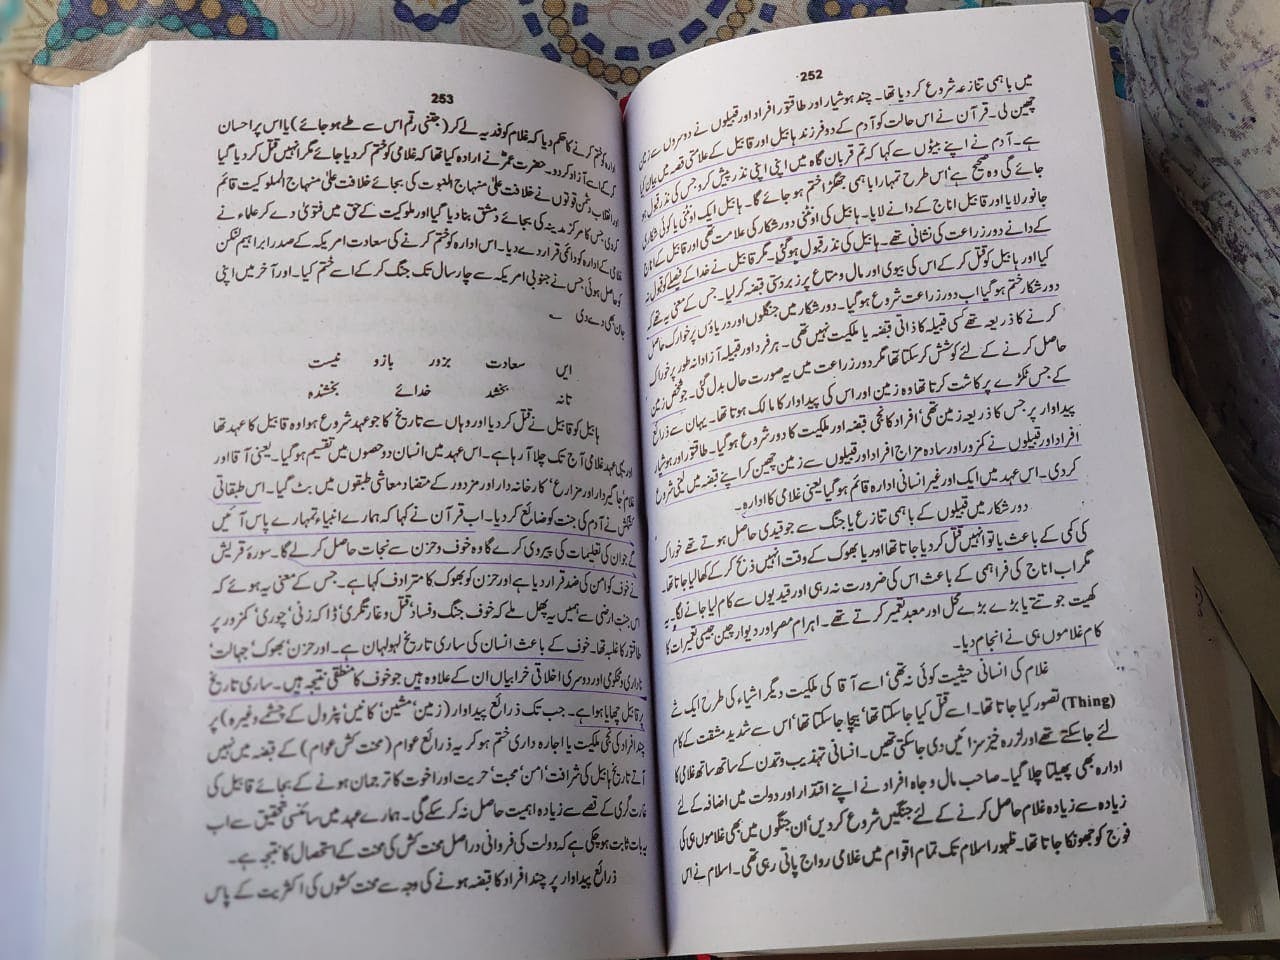 252
میں باہمی تنازعہ شروع کر دیا تھا۔ چند ہوشیار اور طاقتور افراد اور قبیلوں نے دوسروں سے زمین
چھین لی۔ قرآن نے اس حالت کو آدم کے دو فرزند ہابیل اور قابیل کے علامتی قصہ میں بیان کیا
ہے۔ آدم نے اپنے بیٹوں سے کہا کہ تم قربان گاہ میں اپنی اپنی نذر پیش کرو، جس کی نذر قبول ہو
جائے گی وہ صحیح ہے اس طرح تمہارا باہمی جھگڑا ختم ہو جائے گا۔ ہابیل ایک اونٹنی یا کوئی شکاری
جانور لایا اور قابیل اناج کے دانے لایا۔ ہابیل کی اونٹنی دور شکار کی علامت تھی اور قابیل کے اناج
کے دانے دور زراعت کی نشانی تھے۔ ہابیل کی نذر قبول ہو گئی۔ مگر قابیل نے خدا کے فیصلے کو قبول نہ
کیا اور ہابیل کو قتل کر کے اس کی بیوی اور مال و متاع پر زبردستی قبضہ کر لیا۔ جس کے معنی یہ تھے کہ
دور شکار ختم ہو گیا اب دور زراعت شروع ہو گیا۔ دور شکار میں جنگلوں اور دریاؤں پر خوراک حاصل
کرنے کا ذریعہ تھے کسی قبیلہ کا ذاتی قبضہ یا ملکیت نہیں تھی۔ ہر فرد اور قبیلہ آزادانہ طور پر خوراک
حاصل کرنے کے لئے کوشش کر سکتا تھا مگر دور زراعت میں یہ صورت حال بدل گئی۔ جو شخص زمین
کے جس ٹکڑے پر کاشت کرتا تھا وہ زمین اور اس کی پیداوار کا مالک ہوتا تھا۔ یہاں سے ذرائع
پیداوار پر جس کا ذریعہ زمین تھی، افراد کا نجی قبضہ اور ملکیت کا دور شروع ہو گیا۔ طاقتور اور ہوشیار
افراد اور قبیلوں نے کمزور اور سادہ مزاج افراد اور قبیلوں سے زمین چھین کر اپنے قبضہ میں لینی شروع
کر دی۔ اس عہد میں ایک اور غیر انسانی ادارہ قائم ہو گیا یعنی غلامی کا ادارہ۔
دور شکار میں قبیلوں کے باہمی تنازع یا جنگ سے جو قیدی حاصل ہوتے تھے خوراک
کی کمی کے باعث یا تو انہیں قتل کر دیا جاتا تھا اور یا بھوک کے وقت انہیں ذبح کر کے کھا لیا جاتا تھا۔
مگر اب اناج کی فراہمی کے باعث اس کی ضرورت نہ رہی اور قیدیوں سے کام لیا جانے لگا۔ یہ
کھیت جوتتے یا بڑے بڑے محل اور معبد تعمیر کرتے تھے۔ اہرام مصر اور دیوار چین جیسی تعمیرات کا
کام غلاموں ہی نے انجام دیا۔
غلام کی انسانی حیثیت کوئی نہ تھی، اسے آقا کی ملکیت دیگر اشیاء کی طرح ایک شے
(Thing) تصور کیا جاتا تھا۔ اسے قتل کیا جا سکتا تھا، بیچا جا سکتا تھا، اس سے شدید مشقت کے کام
لئے جا سکتے تھے اور لرزہ خیز سزائیں دی جا سکتی تھیں۔ انسانی تہذیب و تمدن کے ساتھ ساتھ غلامی کا
ادارہ بھی پھیلتا چلا گیا۔ صاحب مال و جاہ افراد نے اپنے اقتدار اور دولت میں اضافہ کے لئے
زیادہ سے زیادہ غلام حاصل کرنے کے لئے جنگیں شروع کر دیں، ان جنگوں میں بھی غلاموں ہی کی
فوج کو جھونکا جاتا تھا۔ ظہور اسلام تک تمام اقوام میں غلامی رواج پاتی رہی تھی۔ اسلام نے اس
253
ادارہ کو ختم کرنے کا حکم دیا کہ غلام کو فدیہ لے کر (جتنی رقم اس سے طے ہو جائے) یا اس پر احسان
کر کے اسے آزاد کر دو۔ حضرت عمرؓ نے ارادہ کیا تھا کہ غلامی کو ختم کر دیا جائے مگر انہیں قتل کر دیا گیا
اور انقلاب دشمن قوتوں نے خلافت علیٰ منہاج النبوت کی بجائے خلافت علیٰ منہاج الملوکیت قائم
کر دی جس کا مرکز مدینہ کی بجائے دمشق بنا دیا گیا اور ملوکیت کے حق میں فتویٰ دے کر علماء نے
غلامی کے ادارہ کو دائمی قرار دے دیا۔ اس ادارہ کو ختم کرنے کی سعادت امریکہ کے صدر ابراہیم لنکن
کو حاصل ہوئی جس نے جنوبی امریکہ سے چار سال تک جنگ کر کے اسے ختم کیا۔ اور آخر میں اپنی
جان بھی دے دی
ایں سعادت بزور بازو نیست
تا نہ بخشد خدائے بخشندہ
ہابیل کو قابیل نے قتل کر دیا اور وہاں سے تاریخ کا جو عہد شروع ہوا وہ قابیل کا عہد تھا
اور یہی عہد غلامی آج تک چلا آ رہا ہے۔ اس عہد میں انسان دو حصوں میں تقسیم ہو گیا۔ یعنی آقا اور
غلام، جاگیردار اور مزارع، کارخانہ دار اور مزدور کے متضاد معاشی طبقوں میں بٹ گیا۔ اس طبقاتی
کشمکش نے آدم کی جنت کو ضائع کر دیا۔ اب قرآن نے کہا کہ ہمارے انبیاء تمہارے پاس آئیں
گے جو ان کی تعلیمات کی پیروی کرے گا وہ خوف و حزن سے نجات حاصل کر لے گا۔ سورۃ قریش
نے خوف کو امن کی ضد قرار دیا ہے اور حزن کو بھوک کا مترادف کہا ہے۔ جس کے معنی یہ ہوئے کہ
اس جنت ارضی سے ہمیں یہ پھل ملے کہ خوف جنگ و فساد، قتل و غارتگری، ڈاکہ زنی، چوری، کمزور پر
طاقتور کا غلبہ تھا۔ خوف کے باعث انسان کی ساری تاریخ لہولہان ہے۔ اور حزن، بھوک، جہالت،
ناداری و محکومی اور دوسری اخلاقی خرابیاں ان کے علاوہ ہیں جو خوف کا منطقی نتیجہ ہیں۔ ساری تاریخ
پر قابیل چھایا ہوا ہے۔ جب تک ذرائع پیداوار (زمین، مشین، کانیں، پٹرول کے چشمے وغیرہ) پر
چند افراد کی نجی ملکیت یا اجارہ داری ختم ہو کر یہ ذرائع عوام (محنت کش عوام) کے قبضہ میں نہیں
آتے تاریخ ہابیل کی شرافت، امن، محبت، حریت اور اخوت کا ترجمان ہونے کے بجائے قابیل کی
غارت گری کے قصے سے زیادہ اہمیت حاصل نہ کر سکے گی۔ ہمارے عہد میں سائنسی تحقیق سے اب
یہ بات ثابت ہو چکی ہے کہ دولت کی فروانی دراصل محنت کش کی محنت کے استحصال کا نتیجہ ہے۔
ذرائع پیداوار پر چند افراد کا قبضہ ہونے کی وجہ سے محنت کشوں کی اکثریت کے پاس